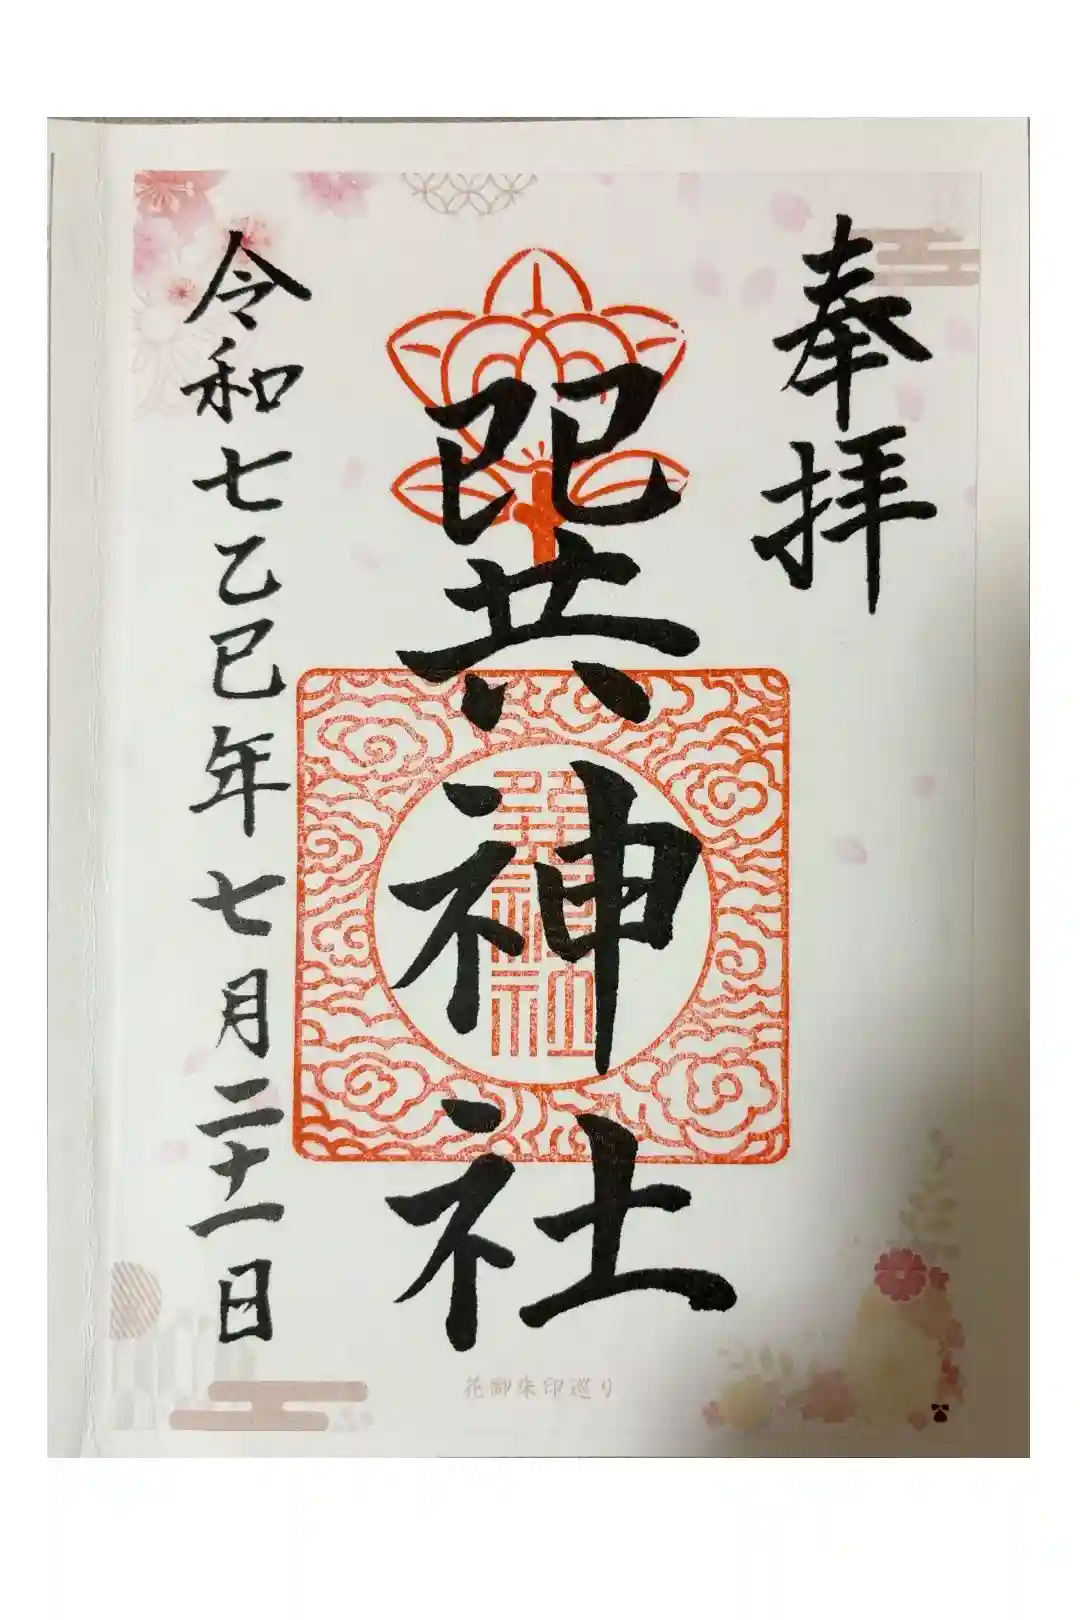 奉拝
巽神社
巽神社
令和七乙巳年七月二十一日
花御朱印巡り